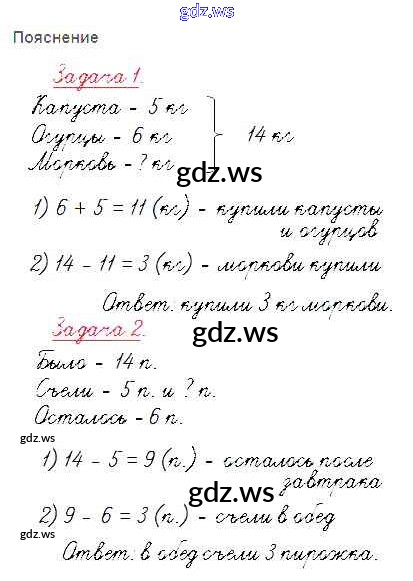 gdz.ws
Пояснение
Задача 1.
Капуста - 5 кг
Огурцы - 6 кг } 14 кг
Морковь - ? кг
gdz.ws
1) 6 + 5 = 11 (кг) - купили капусты
и огурцов
2) 14 - 11 = 3 (кг) - моркови купили
gdz.ws
Ответ: купили 3 кг моркови.
Задача 2.
gdz.ws
Было - 14 п.
Съели - 5 п. и ? п.
Осталось - 6 п.
gdz.ws
gdz.ws
1) 14 - 5 = 9 (п.) - осталось после
завтрака
gdz.ws
2) 9 - 6 = 3 (п.) - съели в обед
Ответ: в обед съели 3 пирожка.
gdz.ws